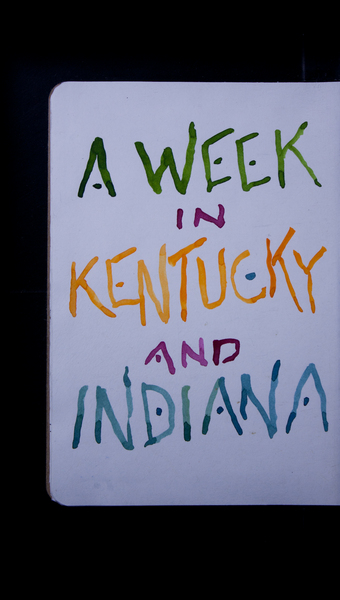 A WEEK
IN
KENTUCKY
AND
INDIANA